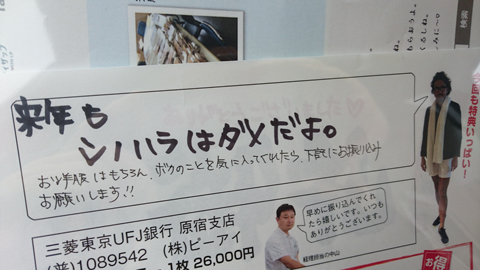 検索
来年も
シハラはダメだよ。
お洋服はもちろん、ボクのことを気に入ってくれたら、下記にお振り込み
お願いします!!
回も特典いっぱい!
早めに振り込んでくれ
たら嬉しいです。いつも
ありがとうございます。
三菱東京UFJ銀行 原宿支店
(普)1089542 (株)ビーアイ
1枚 26,000円
経理担当の中山
得